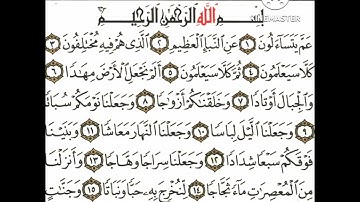 بِسْمِ اللَّهِ الرَّحْمَٰنِ الرَّحِيمِ
KINEMASTER
عَمَّ يَتَسَاءَلُونَ ١ عَنِ النَّبَإِ الْعَظِيمِ ٢ الَّذِي هُمْ فِيهِ مُخْتَلِفُونَ ٣
كَلَّا سَيَعْلَمُونَ ٤ ثُمَّ كَلَّا سَيَعْلَمُونَ ٥ أَلَمْ نَجْعَلِ الْأَرْضَ مِهَادًا ٦
وَالْجِبَالَ أَوْتَادًا ٧ وَخَلَقْنَاكُمْ أَزْوَاجًا ٨ وَجَعَلْنَا نَوْمَكُمْ سُبَاتًا
٩ وَجَعَلْنَا اللَّيْلَ لِبَاسًا ١٠ وَجَعَلْنَا النَّهَارَ مَعَاشًا ١١ وَبَنَيْنَا
فَوْقَكُمْ سَبْعًا شِدَادًا ١٢ وَجَعَلْنَا سِرَاجًا وَهَّاجًا ١٣ وَأَنزَلْنَا
مِنَ الْمُعْصِرَاتِ مَاءً ثَجَّاجًا ١٤ لِّنُخْرِجَ بِهِ حَبًّا وَنَبَاتًا ١٥ وَجَنَّاتٍ